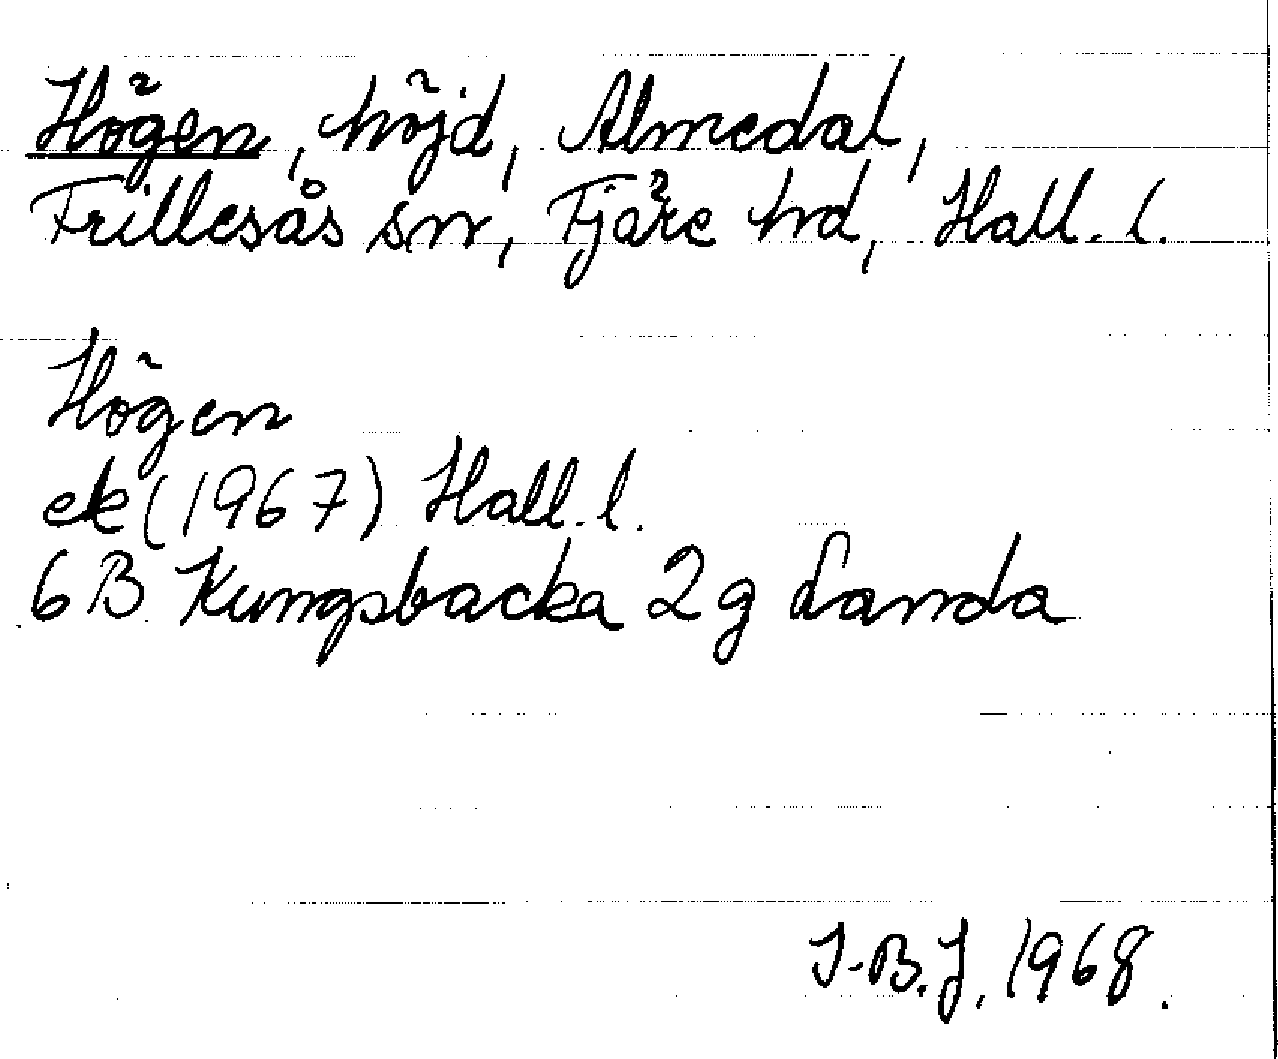 Högen, höjd, Almedal,
Frillesås sn, Fjäre hd, Hall. l.
Högen
ek (1967) Hall. l.
6 B Kungsbacka 2 g Landa
I-B.J. 1968.